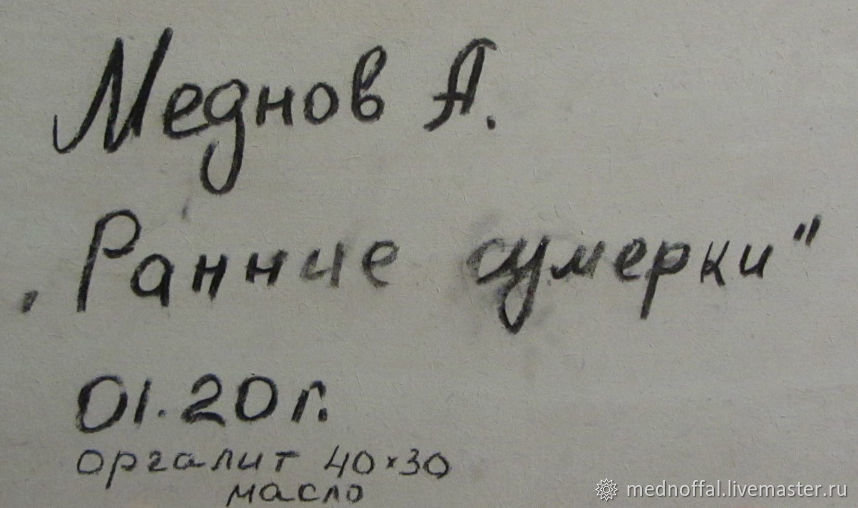 Меднов А.
„Ранние сумерки"
01.20 г.
оргалит 40×30
масло
mednoffal.livemaster.ru